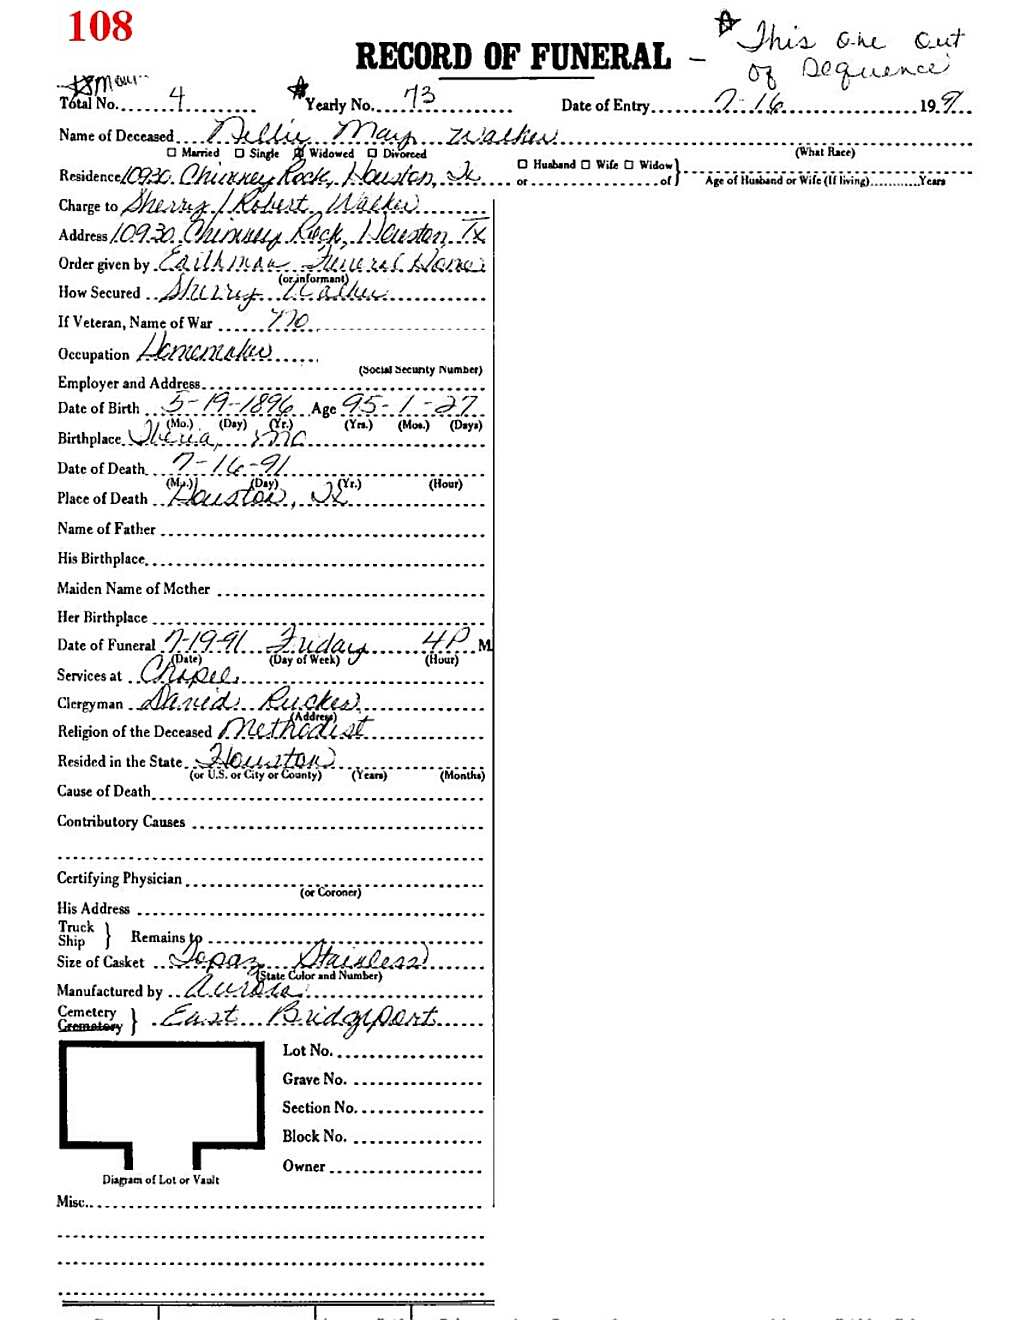 108
RECORD OF FUNERAL -
☆ This one out
of Sequence
Total No. 4 ☆ Yearly No. 73 Date of Entry 7-16 1991
Name of Deceased Nellie May Walker
☐ Married ☐ Single ☒ Widowed ☐ Divorced (What Race)
☐ Husband ☐ Wife ☐ Widow
Residence 10930 Chimney Rock, Houston, Tx or of Age of Husband or Wife (If living) Years
Charge to Sherry / Robert Walker
Address 10930 Chimney Rock, Houston Tx
Order given by Earthman Funeral Home
(or informant)
How Secured Sherry Walker
If Veteran, Name of War no
Occupation Homemaker
(Social Security Number)
Employer and Address
Date of Birth 5-19-1896 Age 95-1-27
(Mo.) (Day) (Yr.) (Yrs.) (Mos.) (Days)
Birthplace Iberia, Mo
Date of Death 7-16-91
(Mo.) (Day) (Yr.) (Hour)
Place of Death Houston, Tx
Name of Father
His Birthplace
Maiden Name of Mother
Her Birthplace
Date of Funeral 7-19-91 Friday 4P M
(Date) (Day of Week) (Hour)
Services at Chapel
Clergyman David Rucker
(Address)
Religion of the Deceased Methodist
Resided in the State Houston
(or U.S. or City or County) (Years) (Months)
Cause of Death
Contributory Causes
Certifying Physician
(or Coroner)
His Address
Truck
Ship } Remains to
Size of Casket Topaz Stainless
(State Color and Number)
Manufactured by Aurora
Cemetery
Crematory } East Bridgeport
Lot No.
Grave No.
Section No.
Block No.
Owner
Diagram of Lot or Vault
Misc.